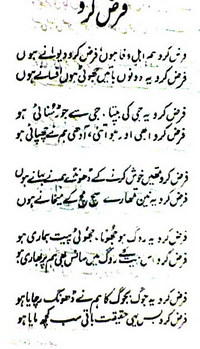 فرض کرو
فرض کرو ہم اہلِ وفا ہوں، فرض کرو دیوانے ہوں
فرض کرو یہ دونوں باتیں جھوٹی ہوں افسانے ہوں
فرض کرو یہ جی کی بپتا، جی سے جوڑ سنائی ہو
فرض کرو ابھی اور ہو اتنی، آدھی ہم نے چھپائی ہو
فرض کرو تمھیں خوش کرنے کے ڈھونڈھے ہم نے بہانے ہوں
فرض کرو یہ نین تمھارے سچ مچ کے میخانے ہوں
فرض کرو یہ روگ ہو جھوٹا، جھوٹی پیت ہماری ہو
فرض کرو اس پیت کے روگ میں سانس بھی ہم پر بھاری ہو
فرض کرو یہ جوگ بجوگ کا ہم نے ڈھونگ رچایا ہو
فرض کرو بس یہی حقیقت باقی سب کچھ مایا ہو